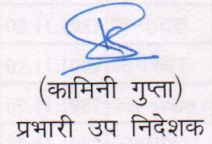 (कामिनी गुप्ता)
प्रभारी उप निदेशक